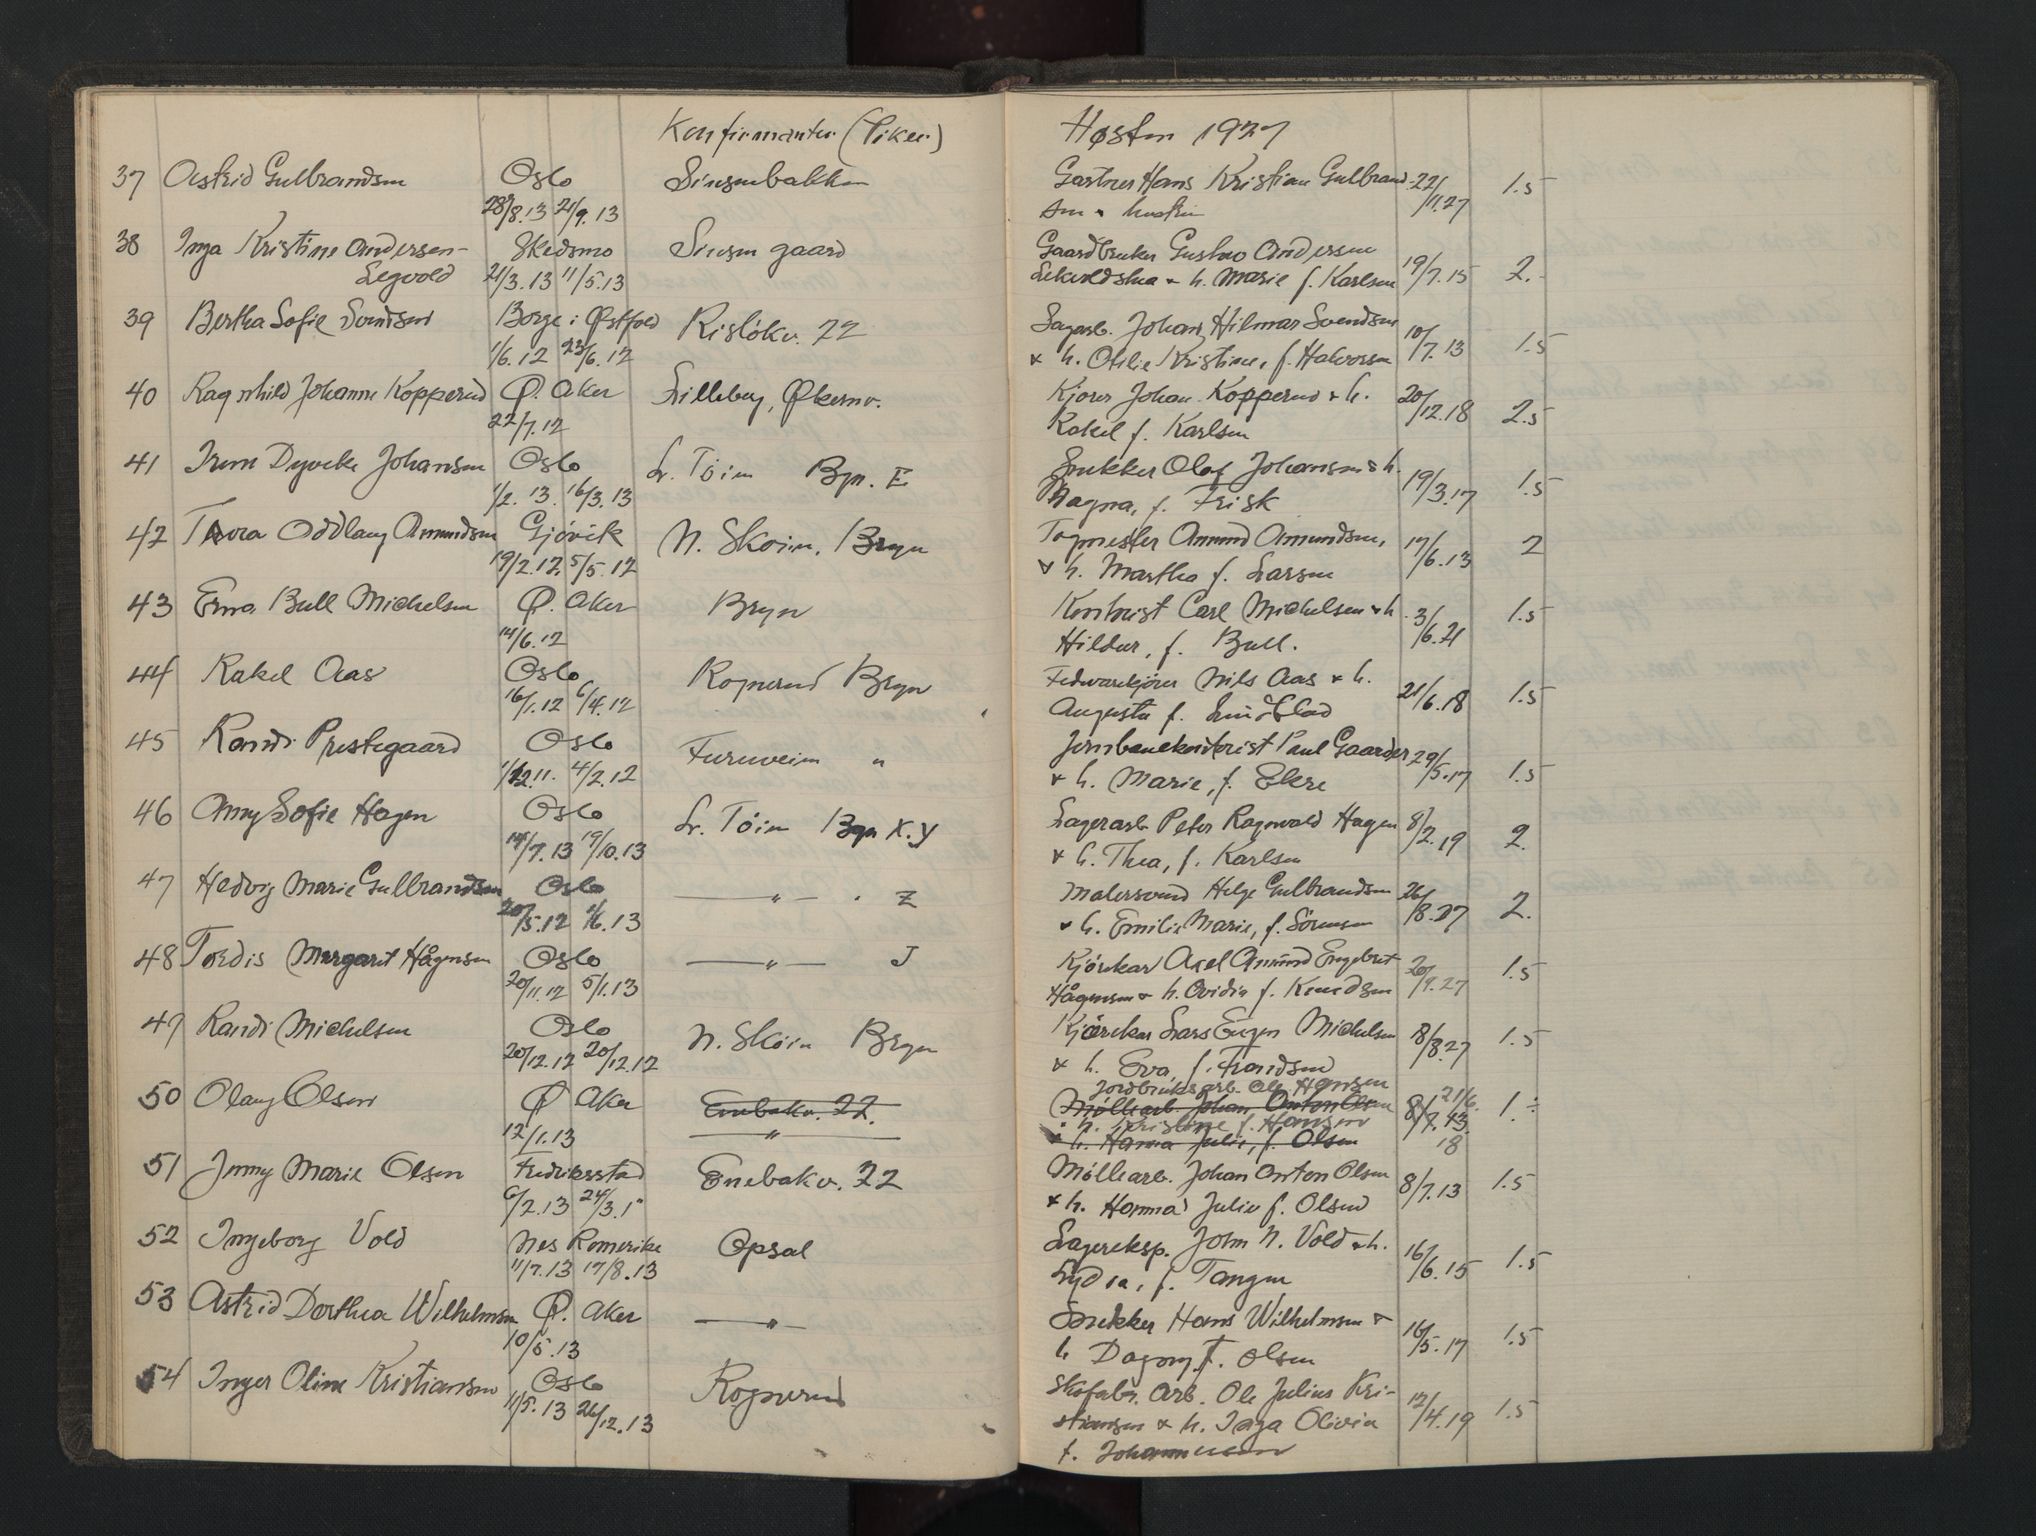 Konfirmanter (Piker)
Høsten 1927
37 Astrid Gulbrandsen Oslo Sinsenbakken Gartner Hans Kristian Gulbrand- 22/ 1.5
28/8.13 21/9.13 sen & hustru 11.27
38 Inga Kristine Andersen- Skedsmo Sinsen gaard Gaardbruker Gustav Andersen
Legvold 21/3.13 11/5.13 & h. Marie f. Karlsen 19/7.15 2.
39 Bertha Sofie Svendsen Borge i Østfold Risløkv. 22 Lagerarb. Johan Hilmar Svendsen 10/ 1.5
1/6.12 23/6.12 & h. Otilie Kristine, f. Halvorsen 7.13
40 Ragnhild Johanne Kopperud Ø. Aker Lilleberg, Økernv. Kjører Johan Kopperud & h. 20/12.18 2.5
22/7.12 Rakel f. Karlsen
41 Irene Dyveke Johansen Oslo Lr. Töien Bryn. E Snekker Olaf Johansen & h.
1/2.13. 16/3.13 Magna, f. Frisk 19/3.17 1.5
42 Thora Oddlaug Amundsen Gjövik N. Skøien. Bryn Togmester Amund Amundsen, 17/6.13 2
19/2.12. 5/5.12 & h. Martha f. Larsen
43 Erna Bull Michelsen Ø. Aker Bryn Kontorist Carl Michelsen & h. 3/6.21 1.5
14/6.12 Hildur, f. Bull.
44 Rakel Aas Oslo Rognerud Bryn Fedvarekjører Nils Aas & h. 21/6.18 1.5
16/1.12 6/4.12 Augusta f. Lindblad
45 Randi Prestegaard Oslo Furuveien " Jernbanekontorist Paul Gaarder 29/5.17
1/12.11. 4/2.12 & h. Marie, f. Ekre 1.5
46 Anny Sofie Hagen Oslo Lr. Töien Bryn X.Y Lagerarb Peter Ragnvald Hagen 8/2.19 2.
14/7.13 19/10.13 & h. Thea, f. Karlsen
47 Hedvig Marie Gulbrandsen Oslo — " — . Z Malersvend Helge Gulbrandsen 26/8.27 2.
20/5.12 1/6.13 & h. Emilie Marie, f. Sørensen
48 Tordis Margaret Hågensen Oslo — " — J Kjörekar Axel Amund Engebret 20/9.27 1.5
20/11.12 5/1.13 Hågensen & h. Ovidia f. Knudsen
47 Randi Michelsen Oslo N. Sköien Bryn Kjörekar Lars Eugen Michelsen 18/8.27 1.5
20/12.12 20/12.12 & h. Eva, f. Frandsen
Jordbruksarb. Ole Hansen
50 Olaug Olsen Ø Aker Enebakv. 22. Møllearb. Johan Anton Olsen 8/7.13. 21/6. 1.
& h. Kristine f. Hansen
12/1.13 — " — & h. Hanna Julie, f. Olsen 18
51 Jenny Marie Olsen Fredriksstad Enebakv. 22 Møllearb. Johan Anton Olsen 8/7.13 1.5
6/2.13 24/3.1" & h. Hanna Julie f. Olsen
52 Ingeborg Vold Nes Romerike Opsal Lagereksp. John N. Vold & h. 16/6.15 1.5
11/7.13 17/8.13 Lydia, f. Tangen
53 Astrid Dorthea Wilhelmsen Ø. Aker — " — Snekker Hans Wilhelmsen & 16/5.17 1.5
10/5.13 h Dagny f. Olsen
54 Inger Oline Kristiansen Oslo Rognerud Skofabr. arb. Ole Julius Kri-
11/5.13 26/12.13 stiansen & h. Inga Olivia 12/4.19 1.5
f. Johannessen